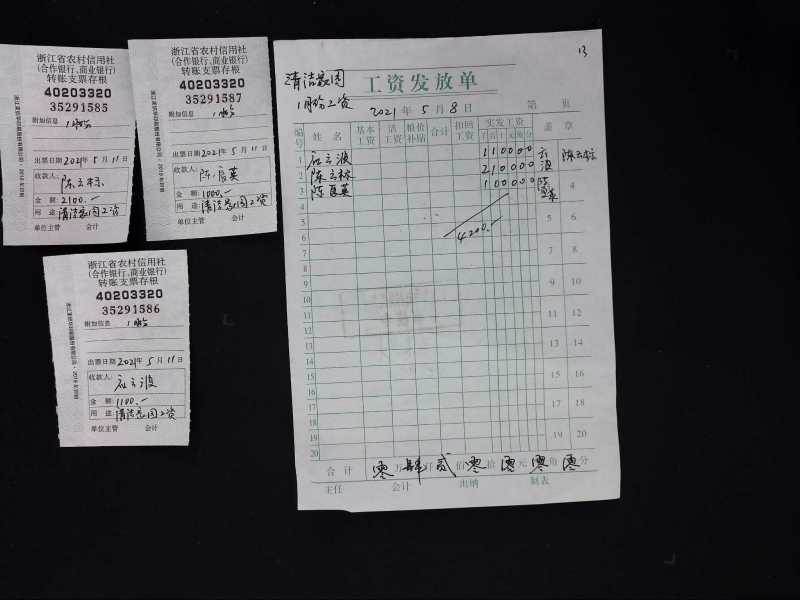 浙江省农村信用社
(合作银行、商业银行)
转账支票存根
40203320
35291585
附加信息
出票日期 2021年 5月 11日
收款人:
陈云林
金 额: 2100.-
用 途: 清洁家园工资
单位主管 会计
浙江省农村信用社
(合作银行、商业银行)
转账支票存根
40203320
35291587
附加信息
出票日期 2021年 5月 11日
收款人:
金 额: 1000.-
用 途: 清洁家园工资
单位主管 会计
浙江省农村信用社
(合作银行、商业银行)
转账支票存根
40203320
35291586
附加信息
出票日期 2021年 5月 11日
收款人:
应云波
金 额: 1100.-
用 途: 清洁家园工资
单位主管 会计
13
清洁家园
1月份工资
工资发放单
2021年 5月 8日 第 页
编号 姓名 基本工资 活工资 粮价补贴 合计 扣回工资 实发工资 盖章
千 百 十 元 角 分
1 应云波 110000 陈云林
2 陈云林 210000
3 100000 4
4
5 6
5
6 4200.-
7 7 8
8
9 9 10
10
11 11 12
12
13 13 14
14
15 15 16
16
17 17 18
18
19 19 20
20
合计 零万肆仟贰佰零拾零元零角零分
主任 会计 出纳 制表